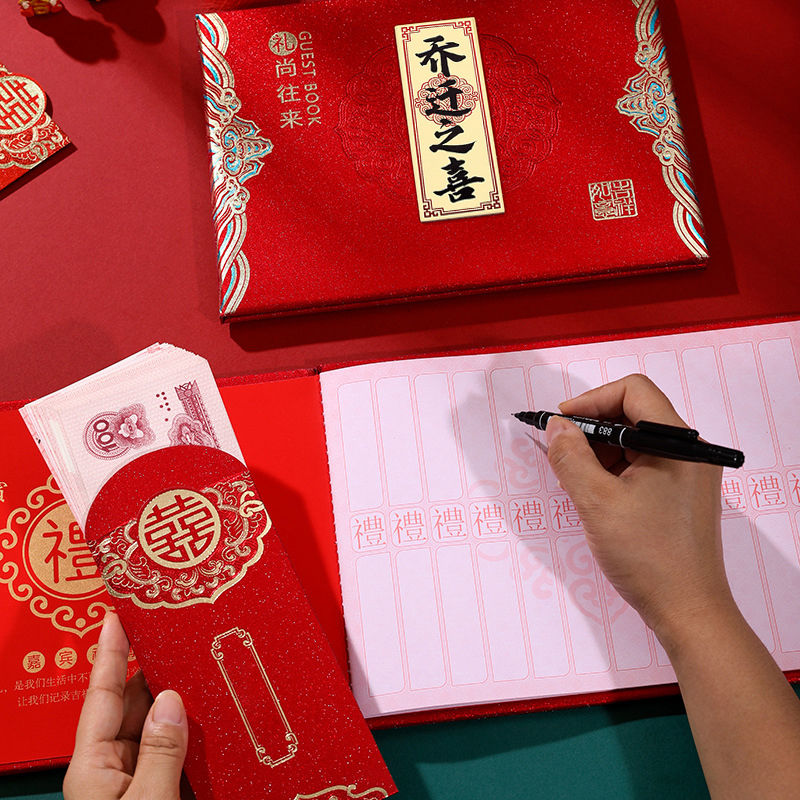 礼尚往来
GUEST BOOK
乔迁之喜
吉祥如意
100
囍
883
禮 禮 禮 禮 禮 禮 禮 禮 禮
禮
嘉宾
是我们生活中不
让我们记录吉祥